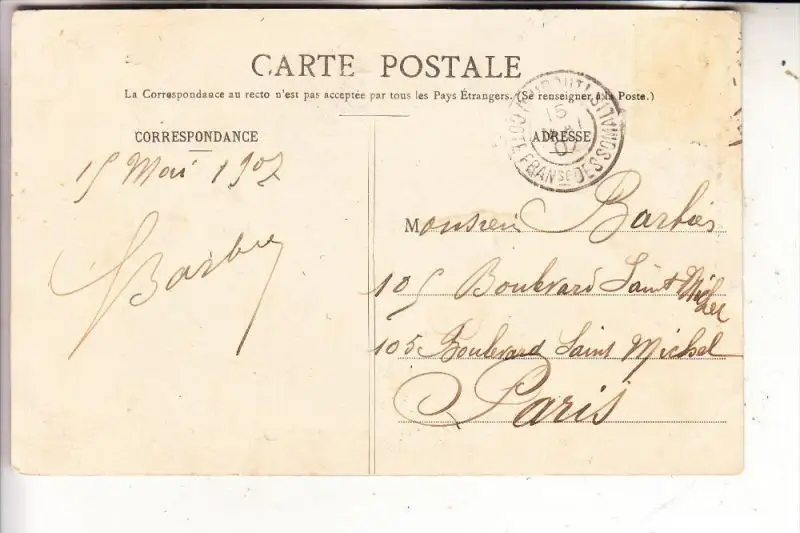 CARTE POSTALE
La Correspondance au recto n'est pas acceptée par tous les Pays Étrangers. (Se renseigner à la Poste.)
CORRESPONDANCE
15 Mai 1907
Barbier
DJIBOUTI
COTE FRANSE DES SOMALIS
15
MAI
07
ADRESSE
Monsieur Barbier
105 Boulevard Saint Michel
105 Boulevard Saint Michel
Paris